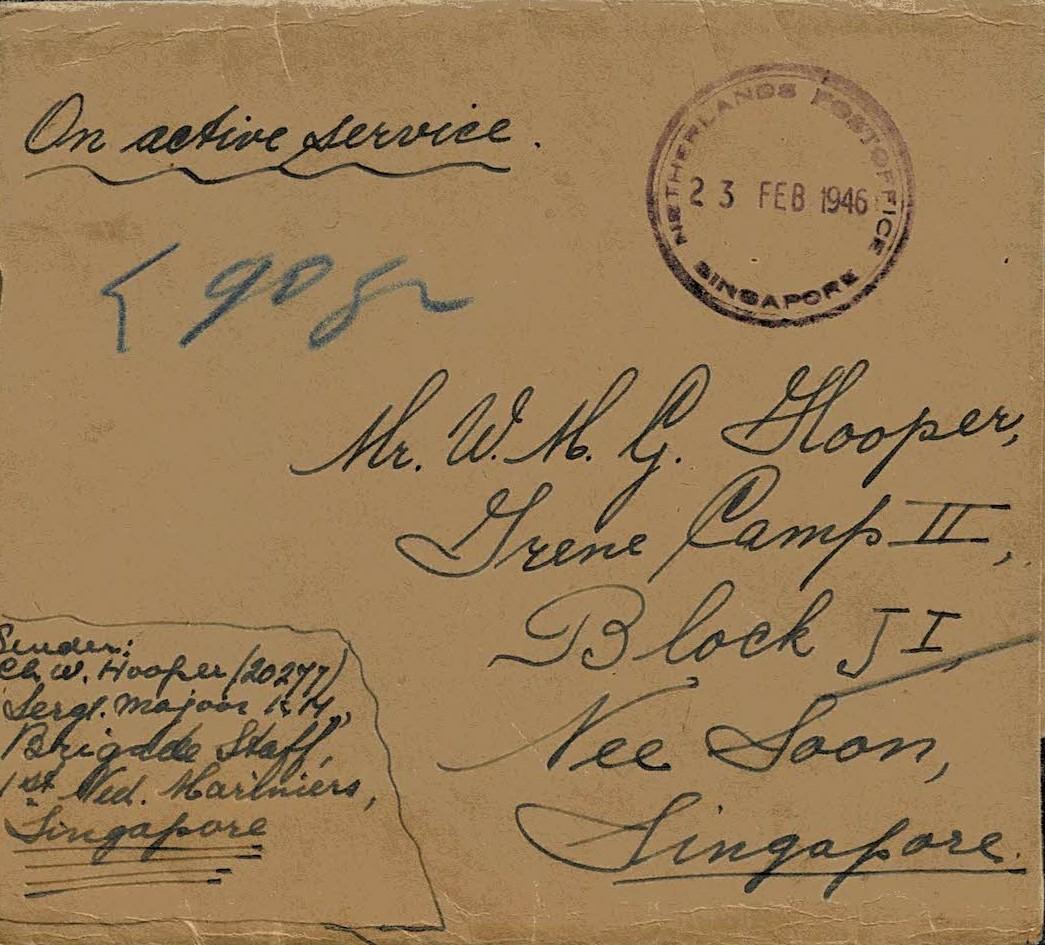 On active service.
NETHERLANDS POSTOFFICE
23 FEB 1946
SINGAPORE
90 gr
Mr. W. M. G. Hooper,
Irene Camp II,
Block J I,
Nee Soon,
Singapore.
Sender:
Ch. W. Hooper (20277)
Sergt. Majoor K.M.,
Brigade Staff,
1st Ned. Mariniers,
Singapore